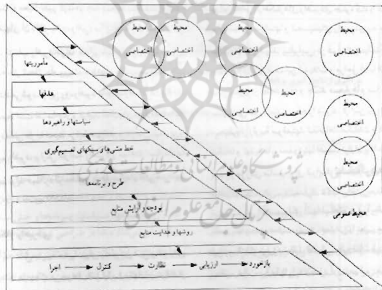 محیط
اختصاصی
محیط
اختصاصی
محیط
اختصاصی
محیط
اختصاصی
محیط
اختصاصی
محیط
اختصاصی
محیط
اختصاصی
محیط
اختصاصی
محیط عمومی
مأموریتها
هدفها
سیاستها و راهبردها
خط مشی‌های و سبکهای تصمیم‌گیری
طرح و برنامه‌ها
بودجه و آرایش منابع
روشها و هدایت منابع
بازخورد ارزیابی نظارت کنترل اجرا
پژوهشگاه علوم انسانی و مطالعات فرهنگی
پرتال جامع علوم انسانی